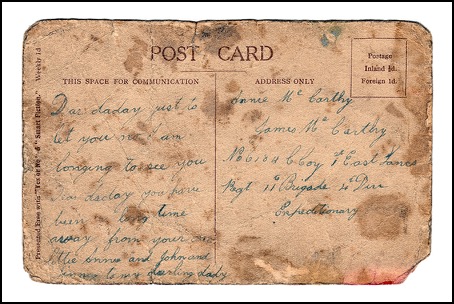 POST CARD
Postage
Inland ½d.
Foreign 1d.
THIS SPACE FOR COMMUNICATION
ADDRESS ONLY
Presented Free with "Yes or No" & "Smart Fiction." Weekly 1d
Dar daday just to
let you no I am
longing to see you
daday you have
been long time
away from your
Annie and John and
to my darling dady
Annie Mc Carthy
James Mc Carthy
No 6104 C Coy 1 East Lancs
Regt 11 Brigade 4 Div
Expeditionary